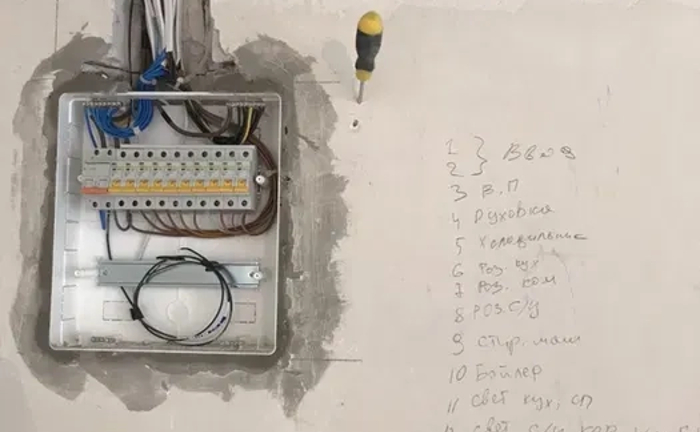 1 } Ввод
2
3 В.П
4 Духовка
5 Холодильник
6 Роз. кух
7 Роз. ком
8 РОЗ С/У
9 Стир. маш
10 Бойлер
11 Свет кух, сп
свет с/у кор